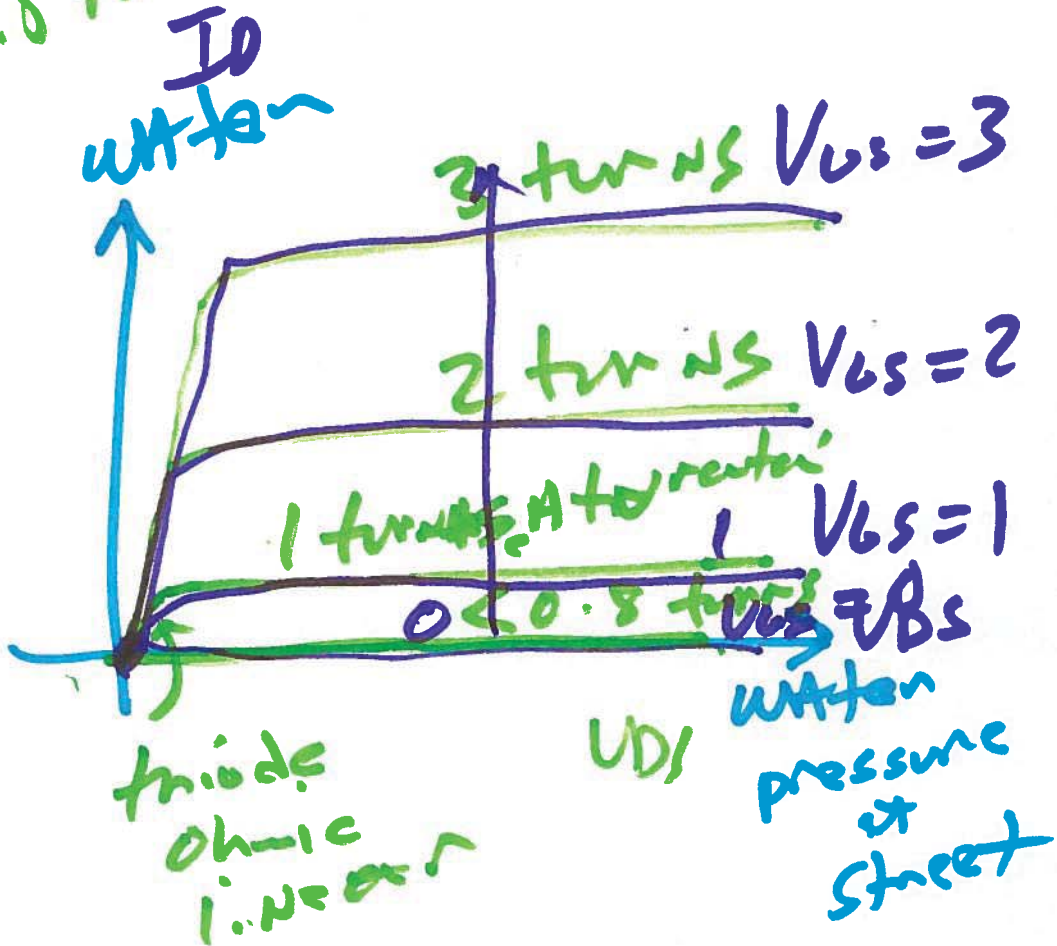 .8
ID
WAter
3 turns VGS = 3
2 turns VGS = 2
1 turn
VGS = 1
0 < 0.8 turns
VDS
WAter
pressure
at
street
triode
ohmic
linear